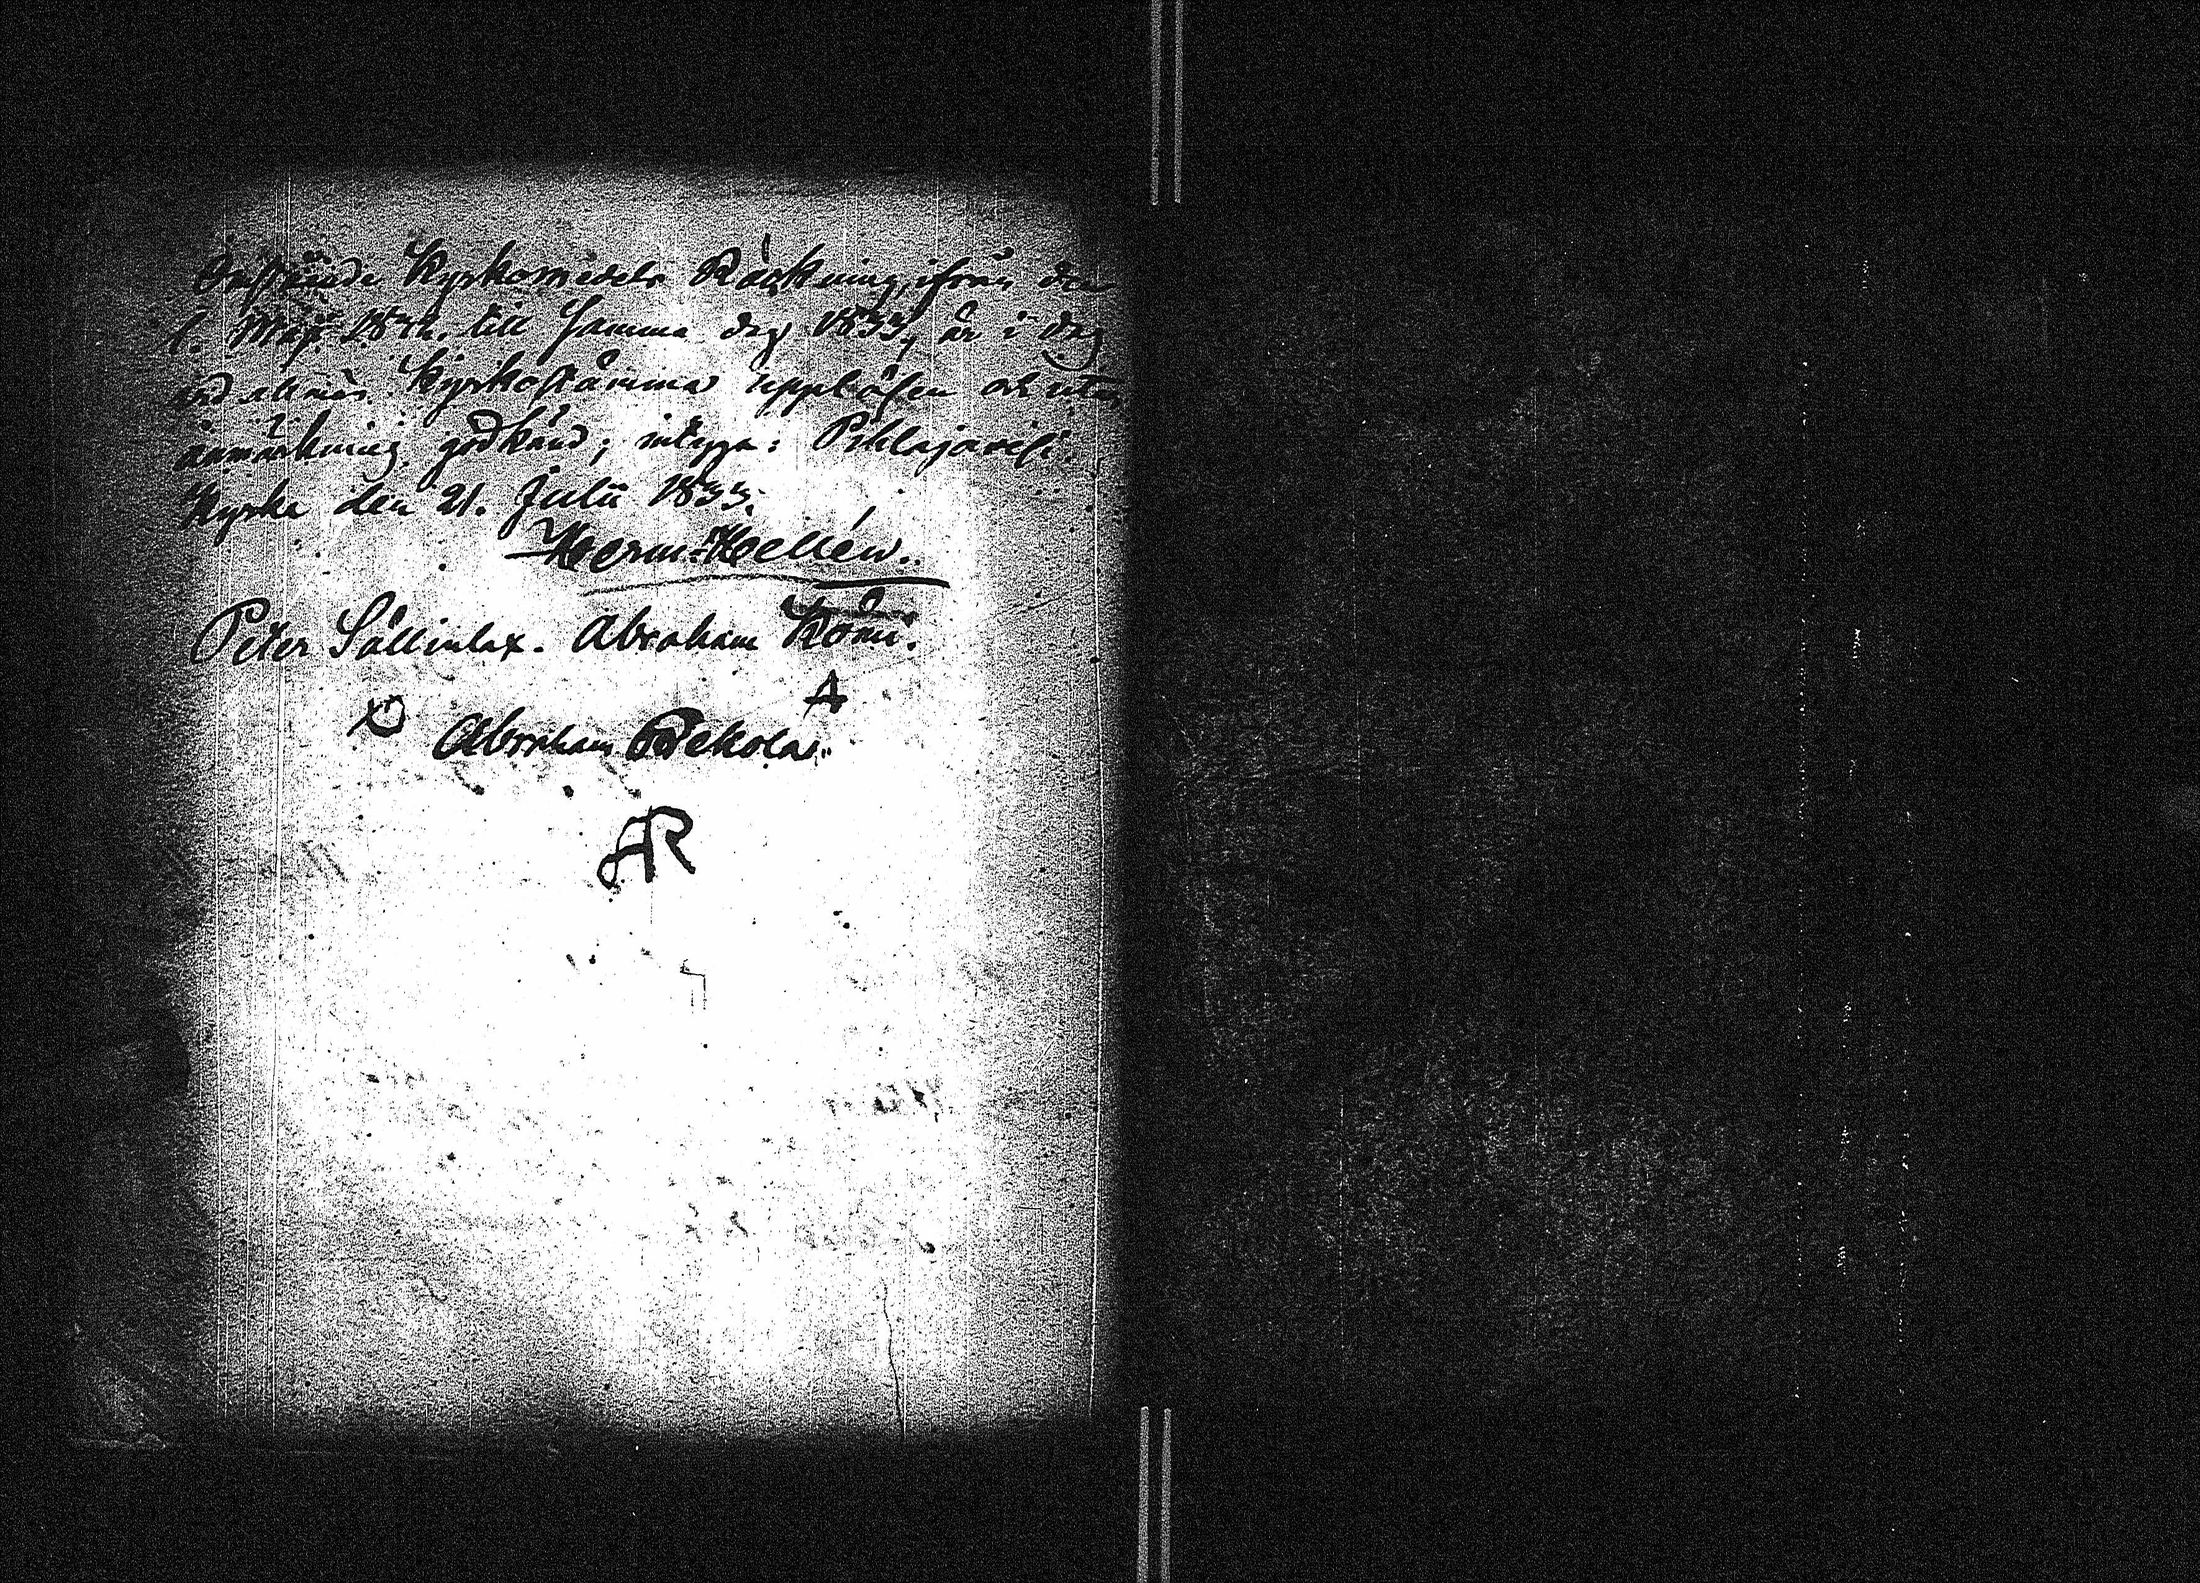 Kyrkomedels Räkning, ifrån den
1. Maji 1832. till samma dag 1833, är i dag
vid allmän Kyrkostämma uppläsen och utan
anmärkning godkänd; intyga: Pihlajavesi
Kyrka den 21. Julii 1833.
Herm: Hellén.
Peter Sällinlax. Abraham Kömi.
A
Abraham
AR